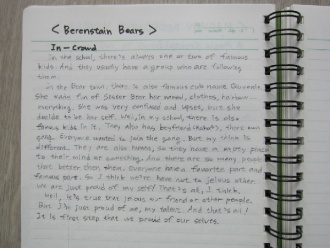 < Berenstain Bears >
In-Crowd
In the school, there's always one or two of famous
kids. And they usually have a group who are following
them.
In the Bear town, that is also famous cub name Queenie.
She made fun of Sister Bear her school, clothes, ribbon
everything. She was very confused and upset, but she
decide to be her self. Well, in my school, there is also
famous kids in it. They also hey boyfriend
gang. Everyone wanted to join the gang. But my think is
different. They are also human, so they have a empty place
to their mind or something. And there are so many people
that better then them. Everyone have a favorite part and
famous part. So I think we're have not to jealous other
we are just proud of my self! That's it, I think.
Well, it's true that jealous our friend or other people.
But I'm just proud of me, my talent. And that's all!
It is first step that we proud of our selves.